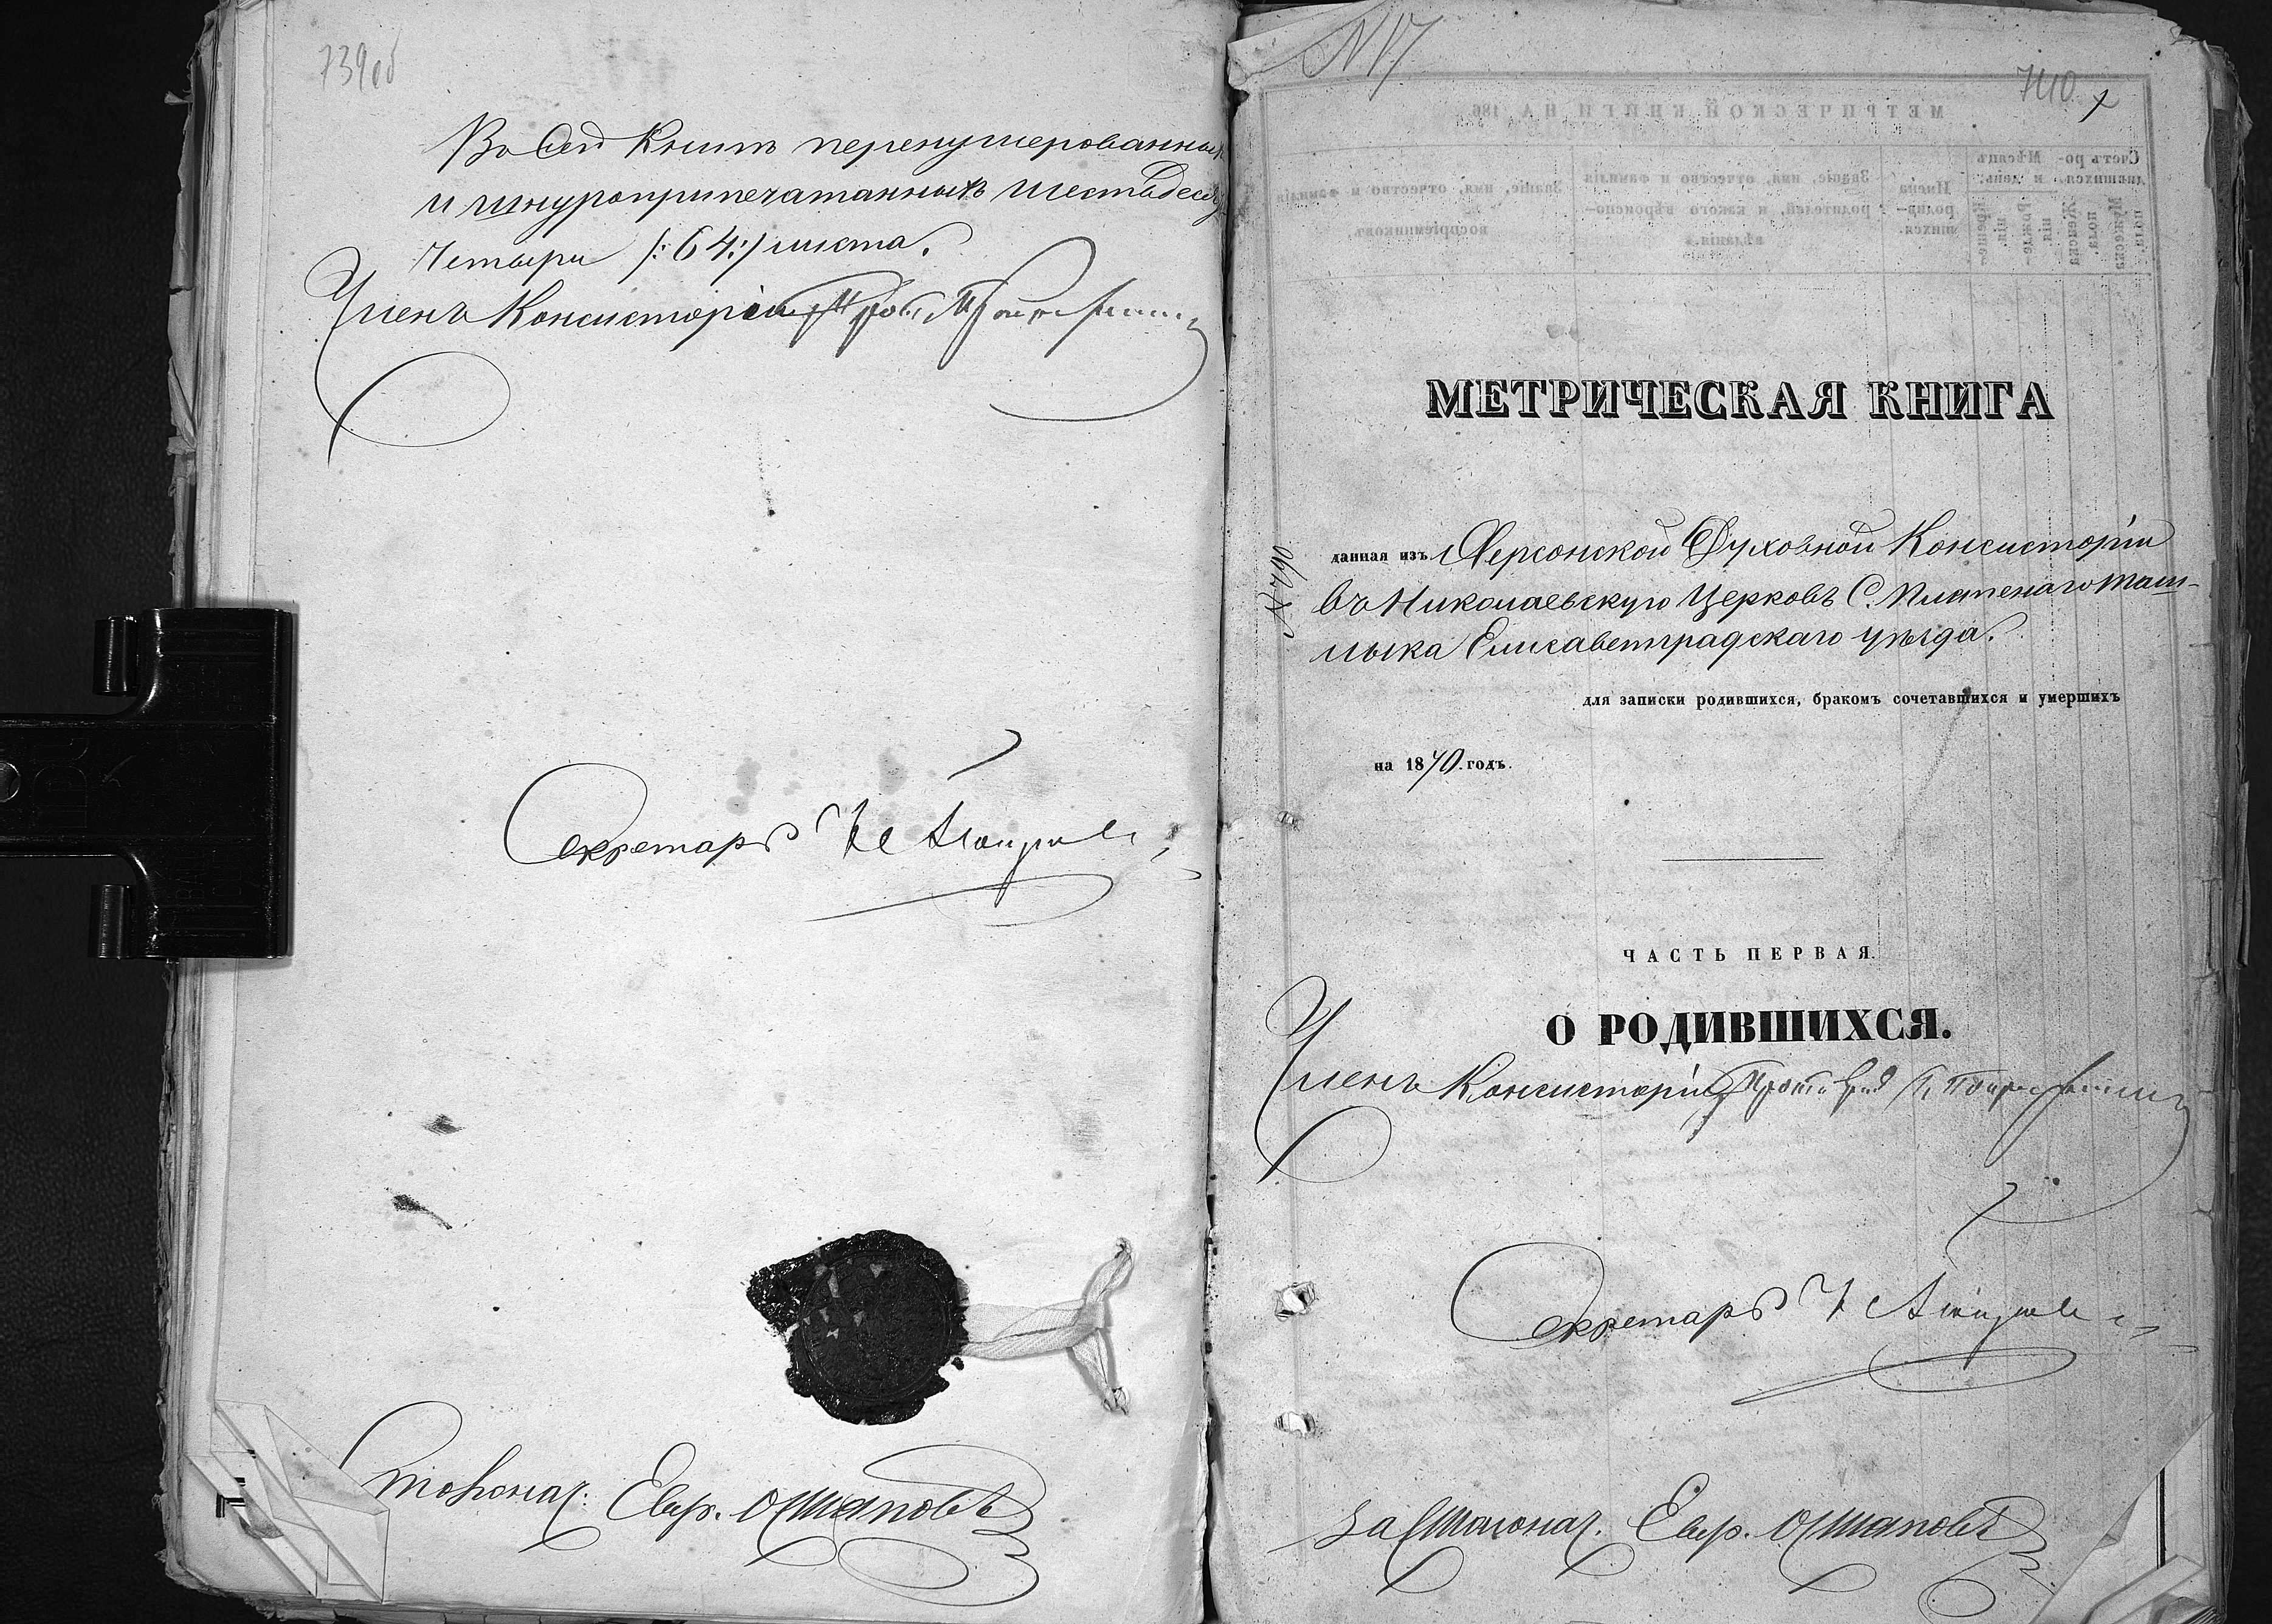 739об
Въ сей Книгѣ перенумерованных
и шнуроприпечатанныхъ шестьдесятъ
Четыри /:64:/ листа.
Членъ Консисторіи
Секретарь
Столонач: Евгр. Остаповъ
N 17
740
МЕТРИЧЕСКОЙ КНИГИ НА 186
Счетъ родившихся.
Мѣсяцъ и день.
Имена родившихся.
Званіе, имя, отчество и фамилія родителей, и какого вѣроисповѣданія.
Званіе, имя, отчество и фамилія воспріемниковъ.
МЕТРИЧЕСКАЯ КНИГА
N 790
данная изъ Херсонской Духовной Консисторіи
въ Николаевскую Церковь С. Плетенаго Таш-
лыка Елисаветградскаго уѣзда.
для записки родившихся, бракомъ сочетавшихся и умершихъ
на 1870. годъ.
ЧАСТЬ ПЕРВАЯ.
О РОДИВШИХСЯ.
Членъ Консисторіи
Секретарь
За Столонач. Евгр. Остаповъ